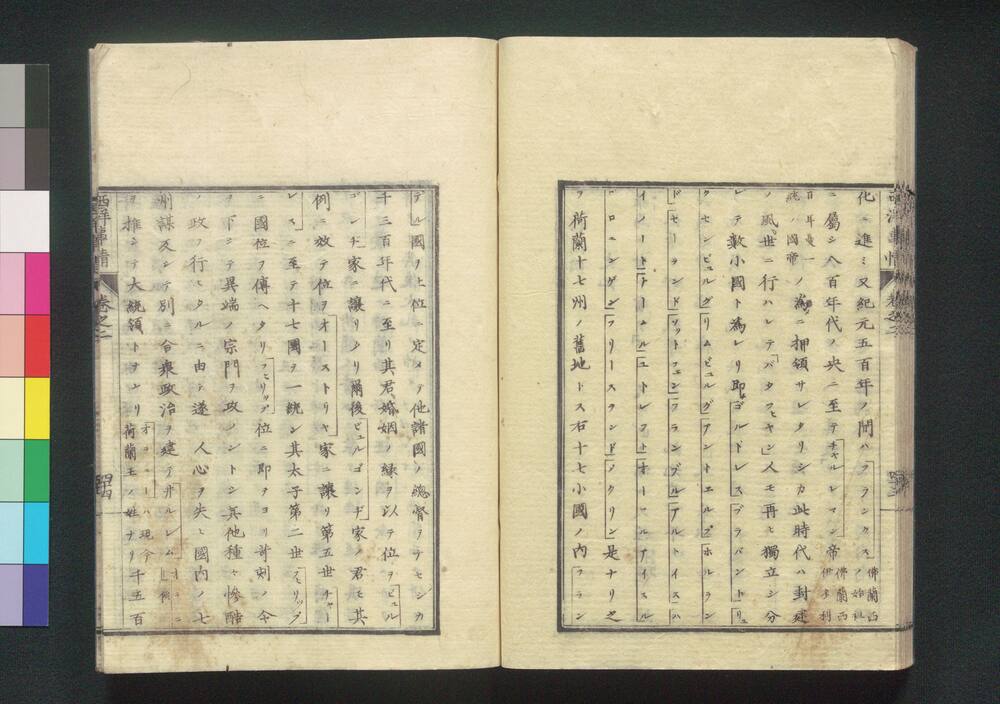 化ニ進ミ又紀元五百年ノ間ハフランクス佛蘭西ノ始祖
ニ屬シ八百年代ノ央ニ至テチャルレマン帝佛蘭西伊太利
日耳曼一統ノ國帝ノ為ニ押領サレタリシカ此時代ハ封建
ノ風世ニ行ハレテバタフヒヤン人モ再ヒ獨立シ分
レテ數小國ト為レリ即ゴルドレスブラバントリュ
クセンビュルグリムビュルグアントエルプホルラン
ドセーランドソットフェンフランダルアルトイスハ
イノートトームルユトレフトオーヘルアイスル
ゴロニングンフリースランドメクリン是ナリ之
ヲ荷蘭十七州ノ舊地トス右十七小國ノ内フラン
デル國ヲ上位ニ定メテ他諸國ノ總督ヲナセシカ
千三百年代ニ至リ其君婚姻ノ縁ヲ以テ位ヲビュル
ゴンヂ家ニ讓リタリ爾後ビュルゴンヂ家ノ君モ其
例ニ效テ位ヲオーストリヤ家ニ讓リ第五世チャー
レスニ至テ十七國ヲ一統シ其太子第二世フヒリップ
ニ國位ヲ傳ヘタリフヒリップ位ニ即クヨリ苛刻ノ令
ヲ下シテ異端ノ宗門ヲ攻メント其他種々慘酷
ノ政ヲ行ヒタルニ由テ遂ニ人心ヲ失ヒ國内ノ七
州謀反シテ別ニ合衆政治ヲ建テ井ルレム
ヲ推シテ大統領トセリオランニーハ現今荷蘭王ノ姓ナリ千五百
西洋事情 卷之二
四十四